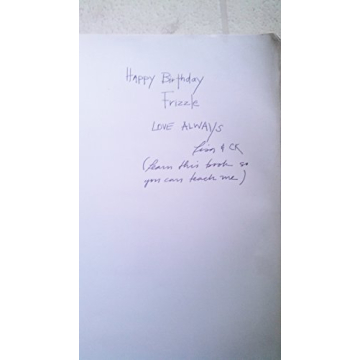 Happy Birthday
Frizzle
LOVE ALWAYS
& CK
(learn this book so
you can teach me)